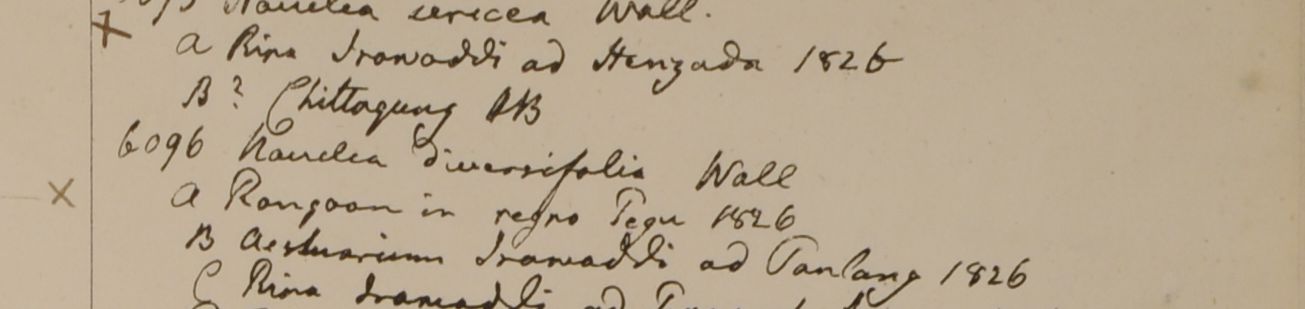 Nauclea sericea Wall.
A Ripa Irawaddi ad Henzada 1826
B? Chittagung HB
6096 Nauclea diversifolia Wall
A Rangoon in regno Pegu 1826
B Aestuarium Irawaddi ad Panlang 1826
C Ripa Irawaddi ad